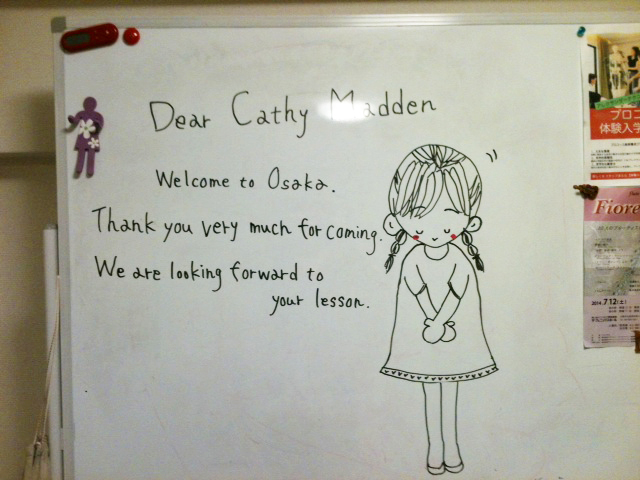 Dear Cathy Madden
Welcome to Osaka.
Thank you very much for coming.
We are looking forward to
your lesson.
プロコ
体験入学
Fiore
2014.7.12(土)